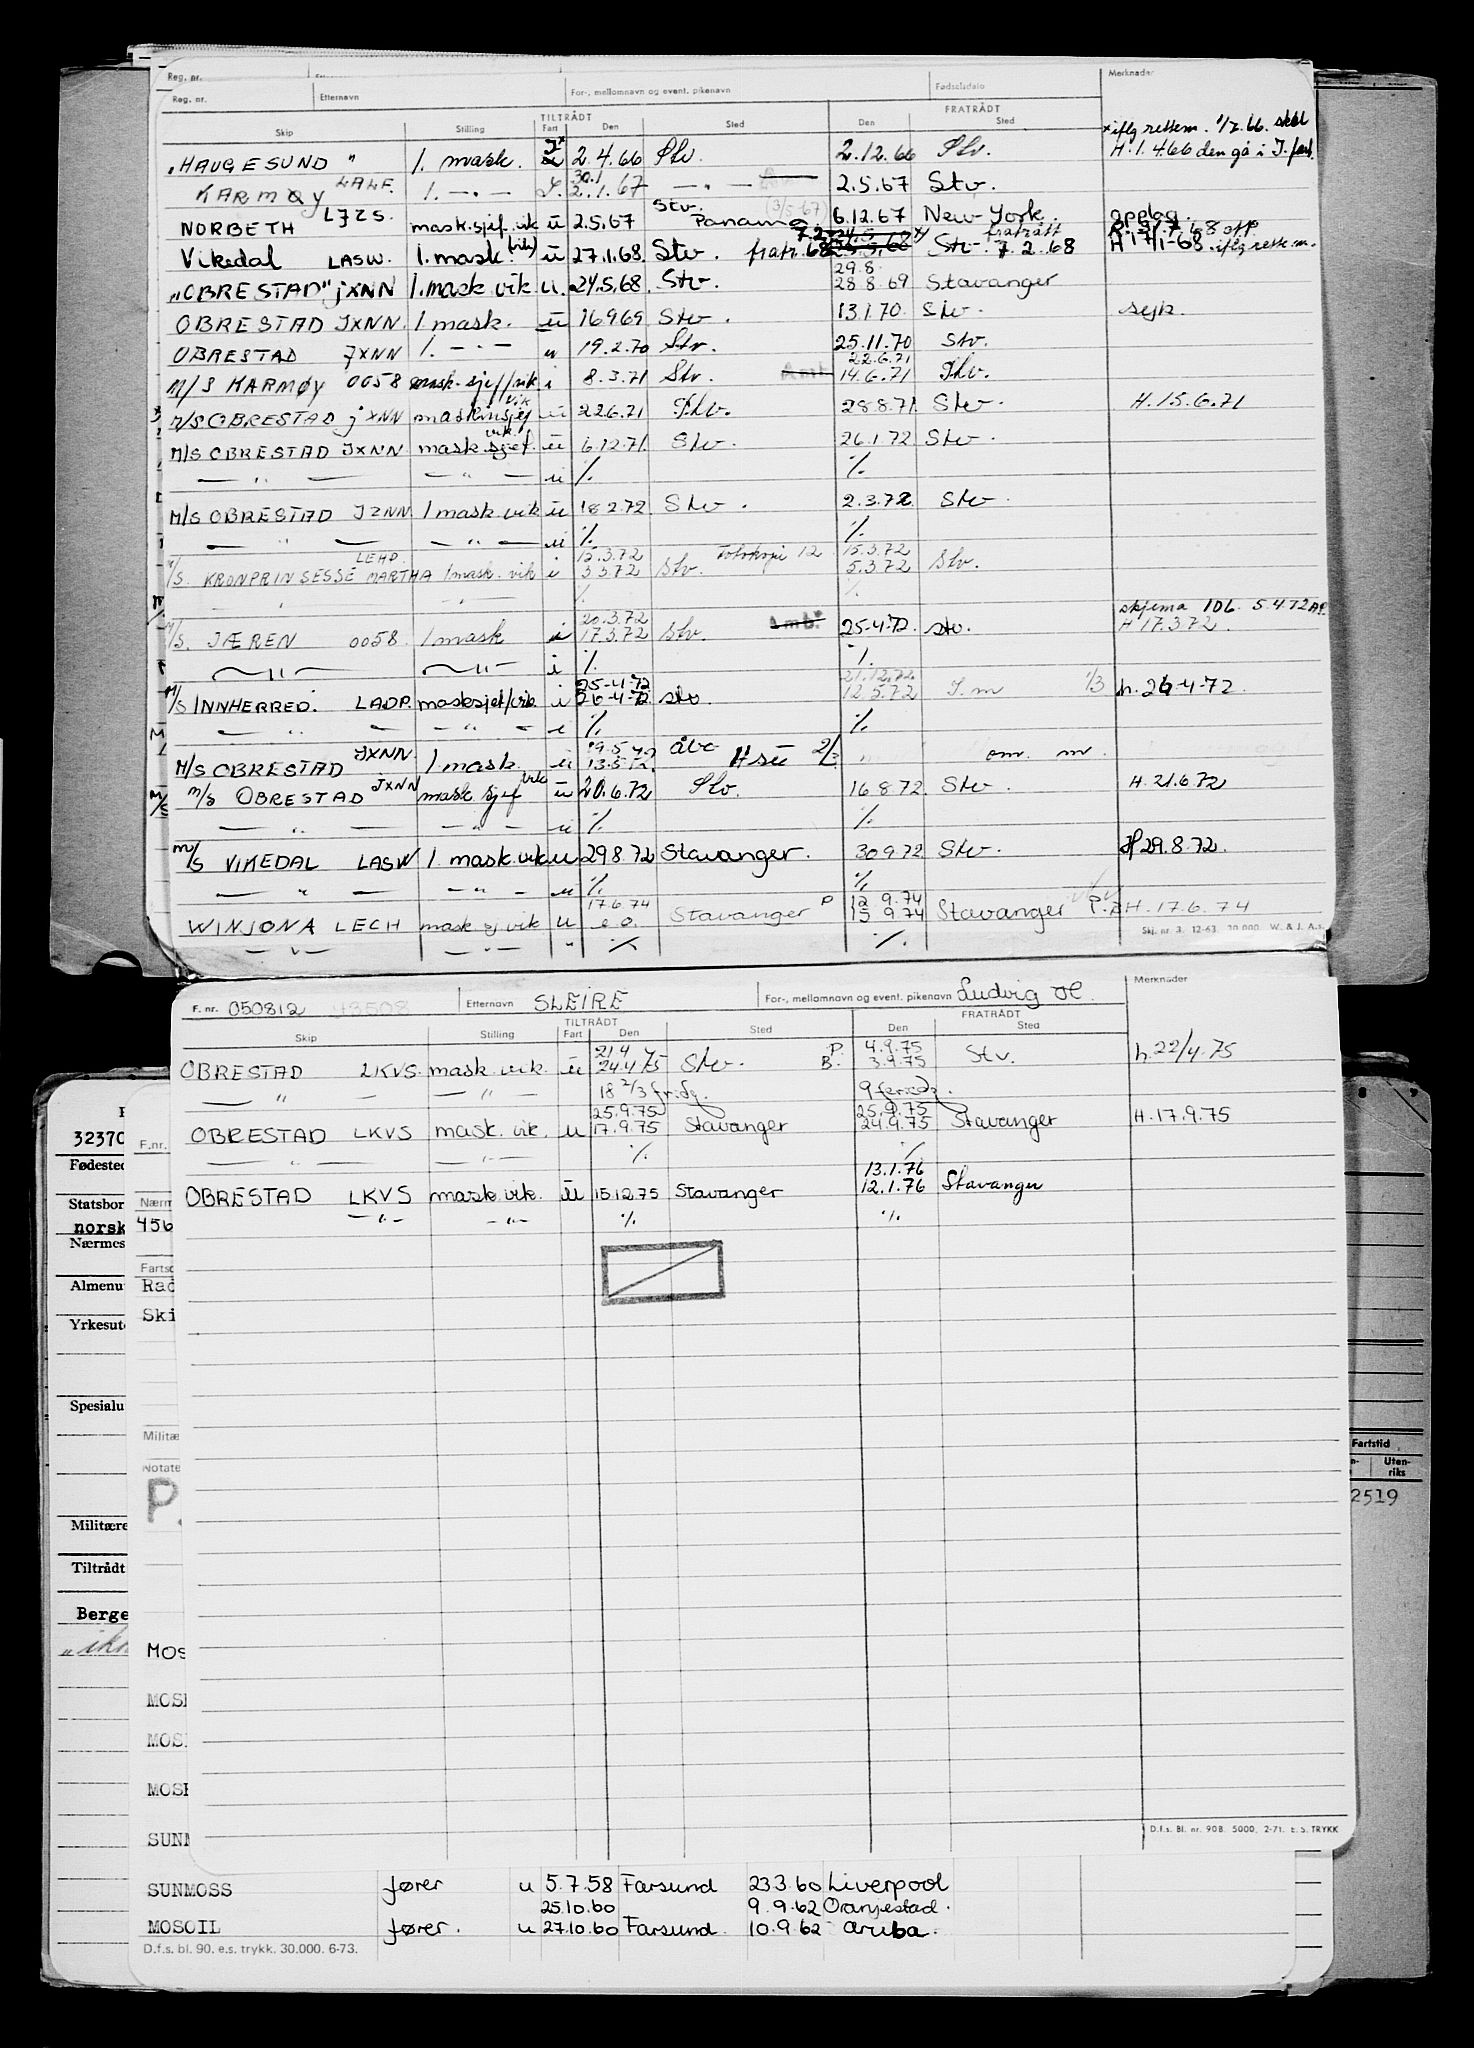 Reg. nr.
Merknader
Reg. nr. Etternavn For-, mellomnavn og event. pikenavn Fødselsdato
TILTRÅDT FRATRÅDT
Skip Stilling Fart Den Sted Den Sted
"HAUGESUND" 1. mask. 2.4.66 Stv. 2.12.66 Stv. H. 1.4.66 den gå i I. fart.
KARMØY LALF. 1. -"- 30.1 2.1.67 -"- 2.5.67 Stv.
NORBETH LJZS. mask.sjef.vik ü 2.5.67 Stv. Panama (3/5-67) 6.12.67 New-York. opplag.
Vikedal LASW. 1. mask. (vik) ü 27.1.68. Stv. fratr. 7.2.68 Stv. fratrått 7.2.68 H 17/1-68. iflg rettem.
"OBRESTAD" JXNN 1. mask vik u. 24.5.68. Stv. 29.8. 28 8.69 Stavanger
OBRESTAD JXNN. 1 mask. ü 16969 Stv. 13.1.70. Stv. syk.
OBRESTAD JXNN 1. -"- u 19.2.70 Stv. 25.11.70 Stv.
M/S KARMØY 0058 mask.sjef/vik i 8.3.71 Stv. 22.6.71 14.6.71 Stv.
M/S OBRESTAD JXNN maskinsjef vik ü 22.6.71 Stv. 28.8.71 Stv. H.15.6.71
M/S OBRESTAD JXNN mask.sjef. vik. ü 6.12.71. Stv. 26.1.72 Stv.
— " — — " — u % %
M/S OBRESTAD JZNN 1 mask.vik ü 18 2.72 Stv. 2.3.72 Stv.
— " — — " — u % %
M/S. KRONPRINSESSE MARTHA LEHD 1 mask. vik i 15.3.72 3 3 72 Stv. 12 15.3.72 5.3.72 Stv.
" — " — % %
M/S. JÆREN 0058. 1 mask i 20.3.72 17.3.72 Stv. 25-4-72. stv. skjema 106. 5.4.72 AP. H 17.3.72.
— " — — " — i % %
M/S INNHERRED. LADP. masksjef/vik i 25-4-72 26-4-72 stv. 21.12.72 12.5.72 I.m 1/3 h. 26-4-72.
— " — — " — i % %
M/S OBRESTAD JXNN 1 mask. ü 19.5.72 13.5.72. H sü 2/3 om. m.
M/S OBRESTAD JXNN mask sjef vik ü 20.6.72 Stv. 16 8 72 Stv. H. 21.6.72
— " — — " — u % %
M/S VIKEDAL LASW 1. mask.vik u 29 8 72 Stavanger. 30 9 72 Stv. H 29.8.72.
— " — — " — u % %
WINJONA LECH mask.sj vik u 17.6.74 e.o. Stavanger P 12 9.74 15 9.74 Stavanger H. 17.6.74
— " — — " — " % %
Skj. nr. 3. 12-63. 30 000. W. & J. A.s
F. nr. 050812 43508 Etternavn SLEIRE For-, mellomnavn og event. pikenavn Ludvig H. Merknader
TILTRÅDT FRATRÅDT
Skip Stilling Fart Den Sted Den Sted
OBRESTAD LKVS. mask. vik. ü 21 4 24.4.75 Stv. P. B. 4.9.75 3.9.75 Stv. h. 22/4.75
— " — — " — 18 2/3 fridg. 9 feriedg.
OBRESTAD LKVS mask. vik. u 25.9.75 17.9.75 Stavanger 25.9.75 24.9.75 Stavanger H. 17.9.75
— " — — " — % %
OBRESTAD LKVS mask. vik. ü 15.12.75 Stavanger 13.1.76 12.1.76 Stavanger
-"- -"- % %
D.f.s. Bl. nr. 90B. 5000, 2-71. E.S. TRYKK
3237
F.nr.
Fødested
Statsbor
Nærm
norsk 456
Nærmes
Fartso
Almenu Rad
Yrkesut Ski
Spesialu
Militæ
Notate
P.
Militære
Tiltrådt
Berge
Fartstid
Uten-
riks
2519
MOS
MOS
MOS
MOS
SUN
SUNMOSS fører u 5.7.58 Farsund 23.3.60 Liverpool
25.10.60 9.9.62 Oranjestad.
MOSOIL fører. u 27.10.60 Farsund. 10.9.62 Aruba.
D.f.s. bl. 90. e.s. trykk. 30.000. 6-73.